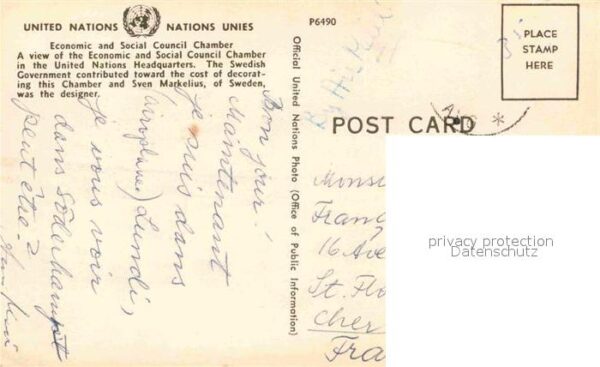 UNITED NATIONS NATIONS UNIES
Economic and Social Council Chamber
A view of the Economic and Social Council Chamber
in the United Nations Headquarters. The Swedish
Government contributed toward the cost of decorat-
ing this Chamber and Sven Markelius, of Sweden,
was the designer.
Bon jour!
Maintenant
je suis dans
airoplane) Lundi,
je vous voir
dans Söderhamn
peut être?
P6490
Official United Nations Photo (Office of Public Information)
By Air Mail
POST CARD
PLACE
STAMP
HERE
Monsi
Franç
16 Ave
St. Flo
Cher
Fra
privacy protection
Datenschutz